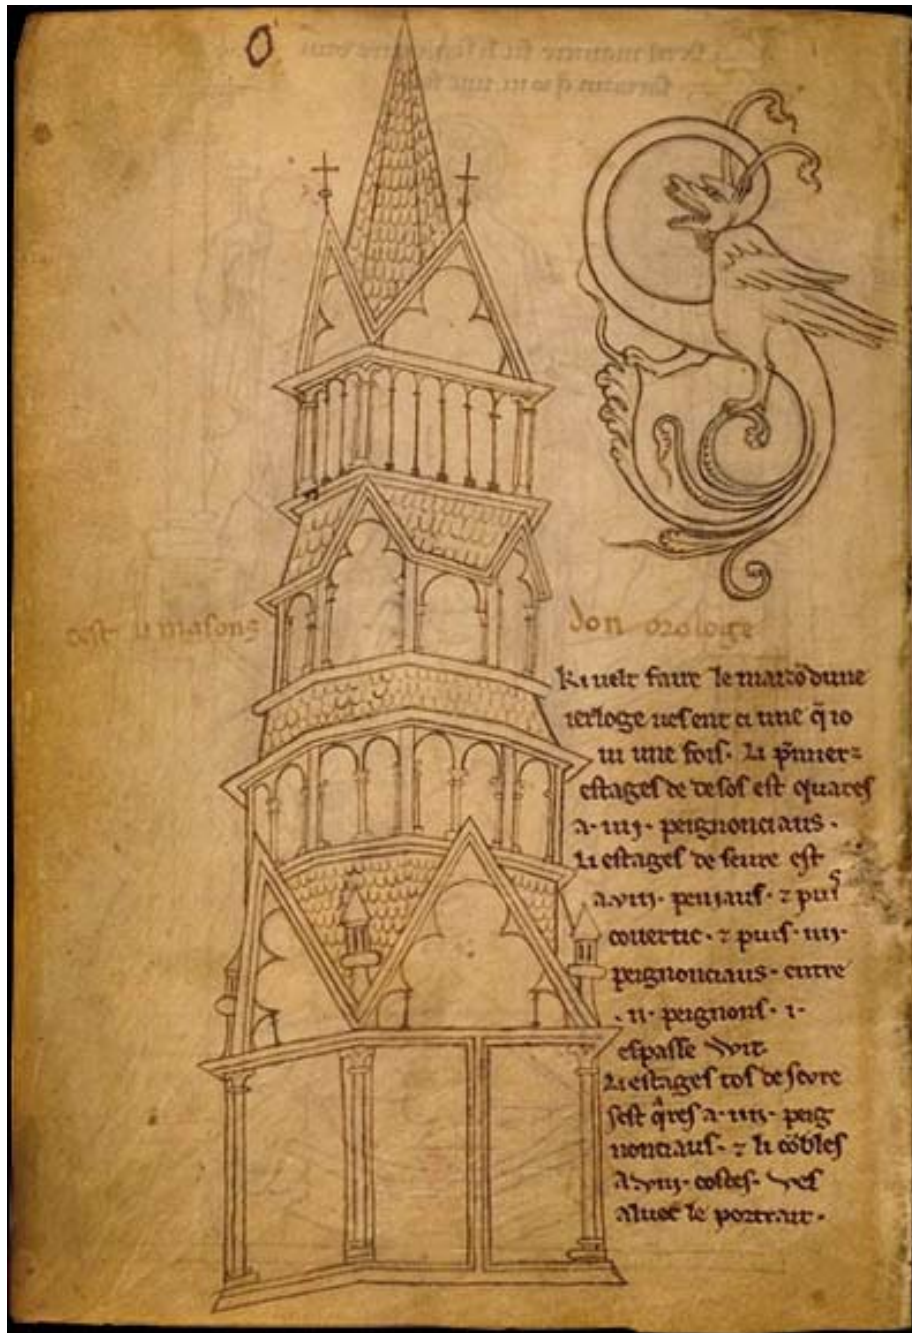 O
cest li masons don orologe
Ki velt faire le maizõ dune
ierloge ves ent ci une q̃ io
vi une fois. Li pͥmier
estages de desos est quares
a .iiij. peignonciaus.
Li estages de seure est
a .viij. peniaus. ⁊ puis
covertic. ⁊ puis .iiij.
peignonciaus. entre
.ij. peignons .i.
espasse wit.
Li estages tos de sevre
sest qͣres a .iiij. peig
nonciaus. ⁊ li cõbles
a .viij. costes. ves
aluec le portrait.